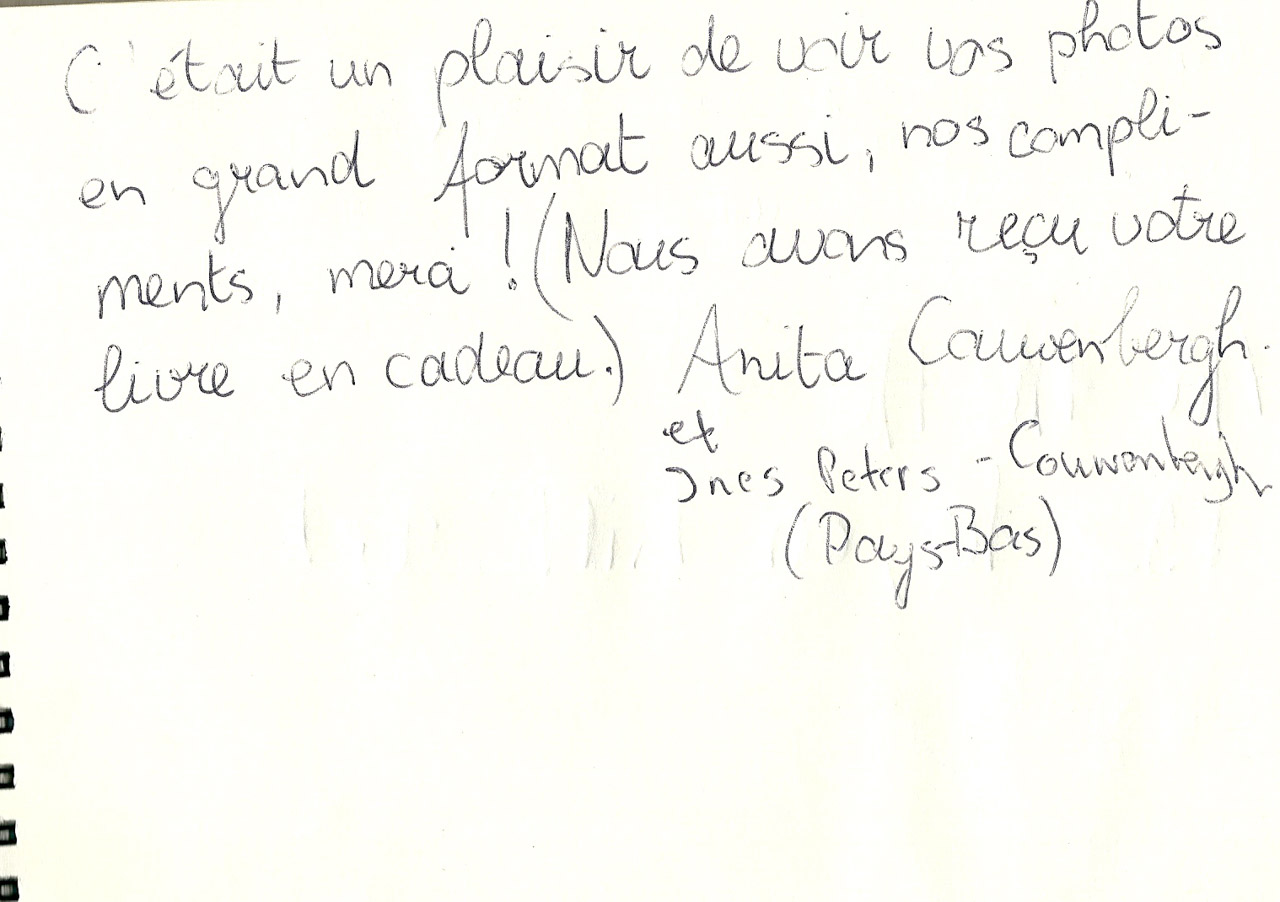 C'était un plaisir de voir vos photos
en grand format aussi, nos compli-
ments, merci ! (Nous avons reçu votre
livre en cadeau.) Anita Couwenbergh.
et
Ines Peters - Couwenbergh
(Pays-Bas)